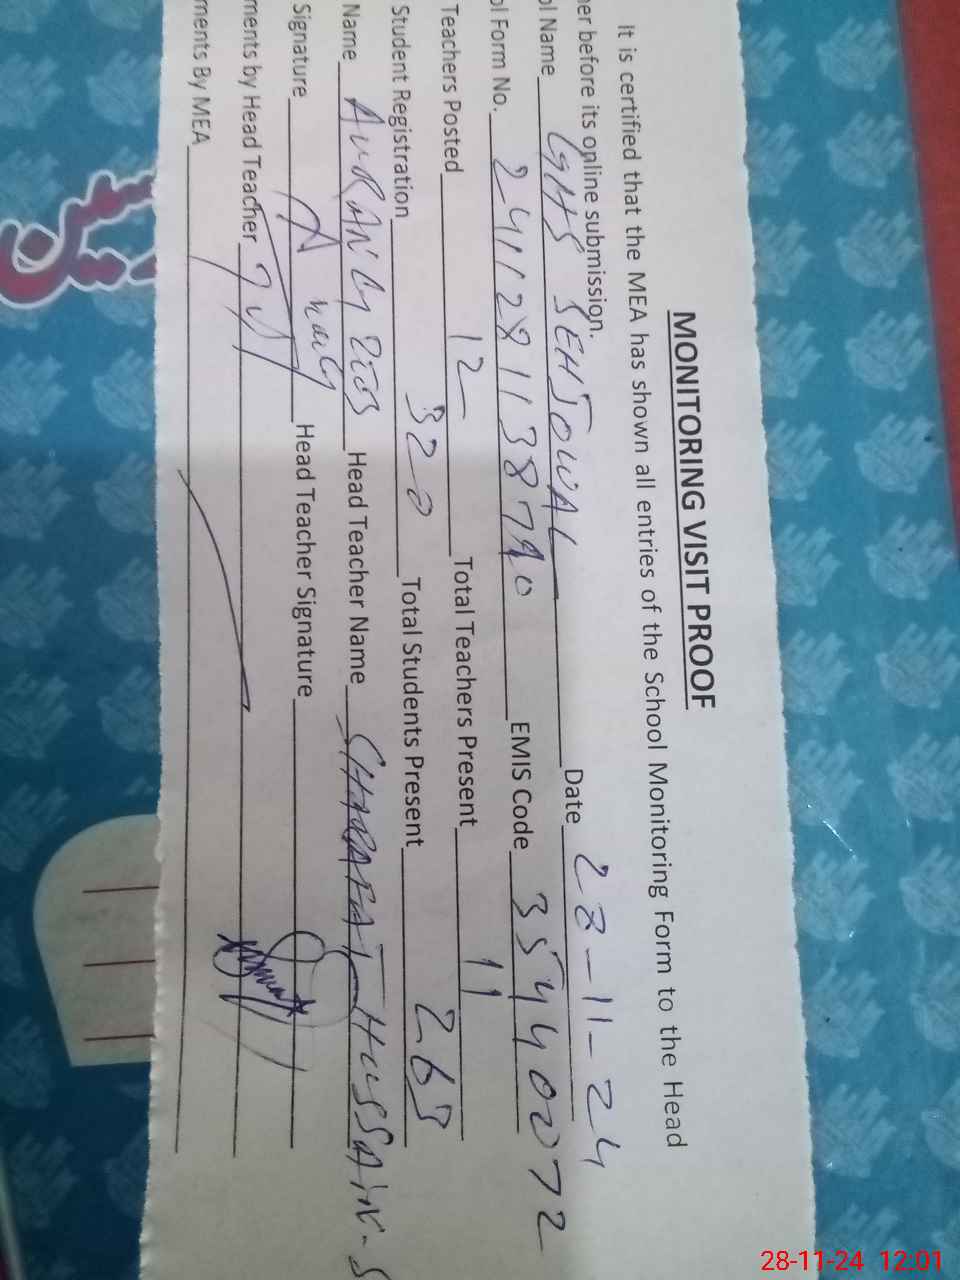 MONITORING VISIT PROOF
It is certified that the MEA has shown all entries of the School Monitoring Form to the Head
her before its online submission.
ol Name GHS SEHJOWAL Date 28-11-24
ol Form No. EMIS Code 35440072
Teachers Posted 12 Total Teachers Present 11
Student Registration 320 Total Students Present
Name Head Teacher Name HUSSAIN
Signature Head Teacher Signature
ments by Head Teacher
ments By MEA
28-11-24 12:01